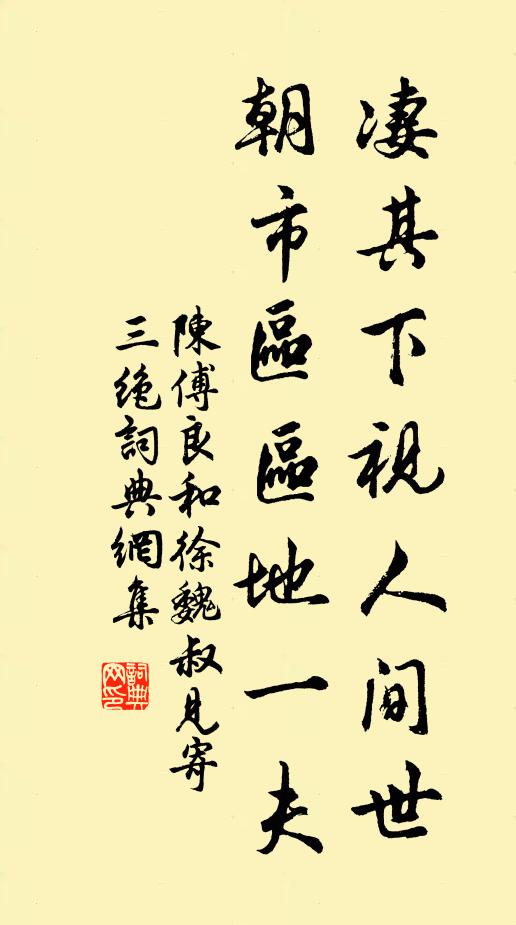 凄其下視人间世
朝市區區地一夫
陳傅良和徐魏叔見寄
三绝詞典網集
詞典
网印